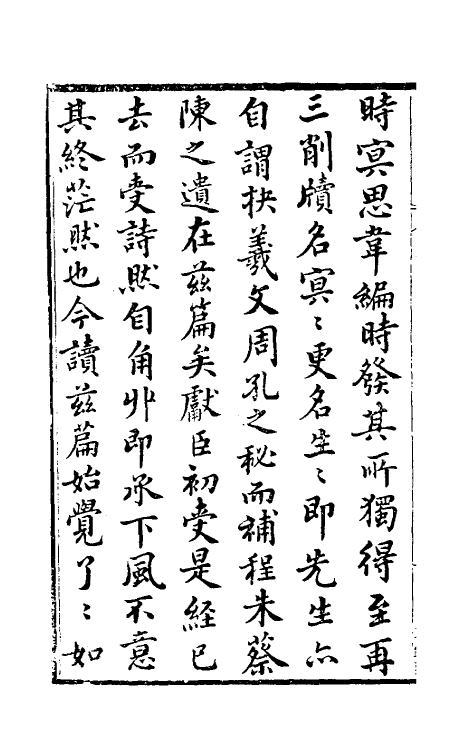 時㝠思韋編時發其所獨得至再
三削牘名㝠〻更名生〻即先生亦
自謂抉羲文周孔之秘而補程朱蔡
陳之遺在茲篇矣獻臣初受是經已
去而受詩然自角丱即承下風不意
其終茫然也今讀茲篇始覺了〻如